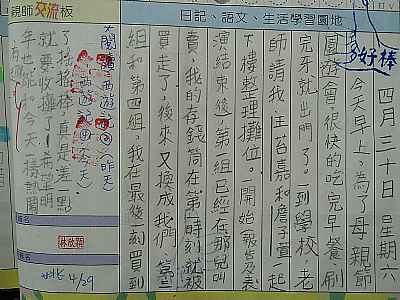 親師交流板
日記、語文、生活學習園地
多好棒
四月三十日星期六
今天早上，為了母親節
園遊會，很快的吃完早餐，刷
完牙就出門了。一到學校，老
師請我、王苔嘉和詹子萱一起
下樓整理攤位。開始
演結束後，第一組已經在那兒叫
賣，我的存錢筒在第一時刻就被
買走了，後來又換成我們第三
組和第四組，我在最後一刻買到
了拍拍棒，真是差一點
就要收攤了！希望明
年也能和今天一樣熱鬧
4/29